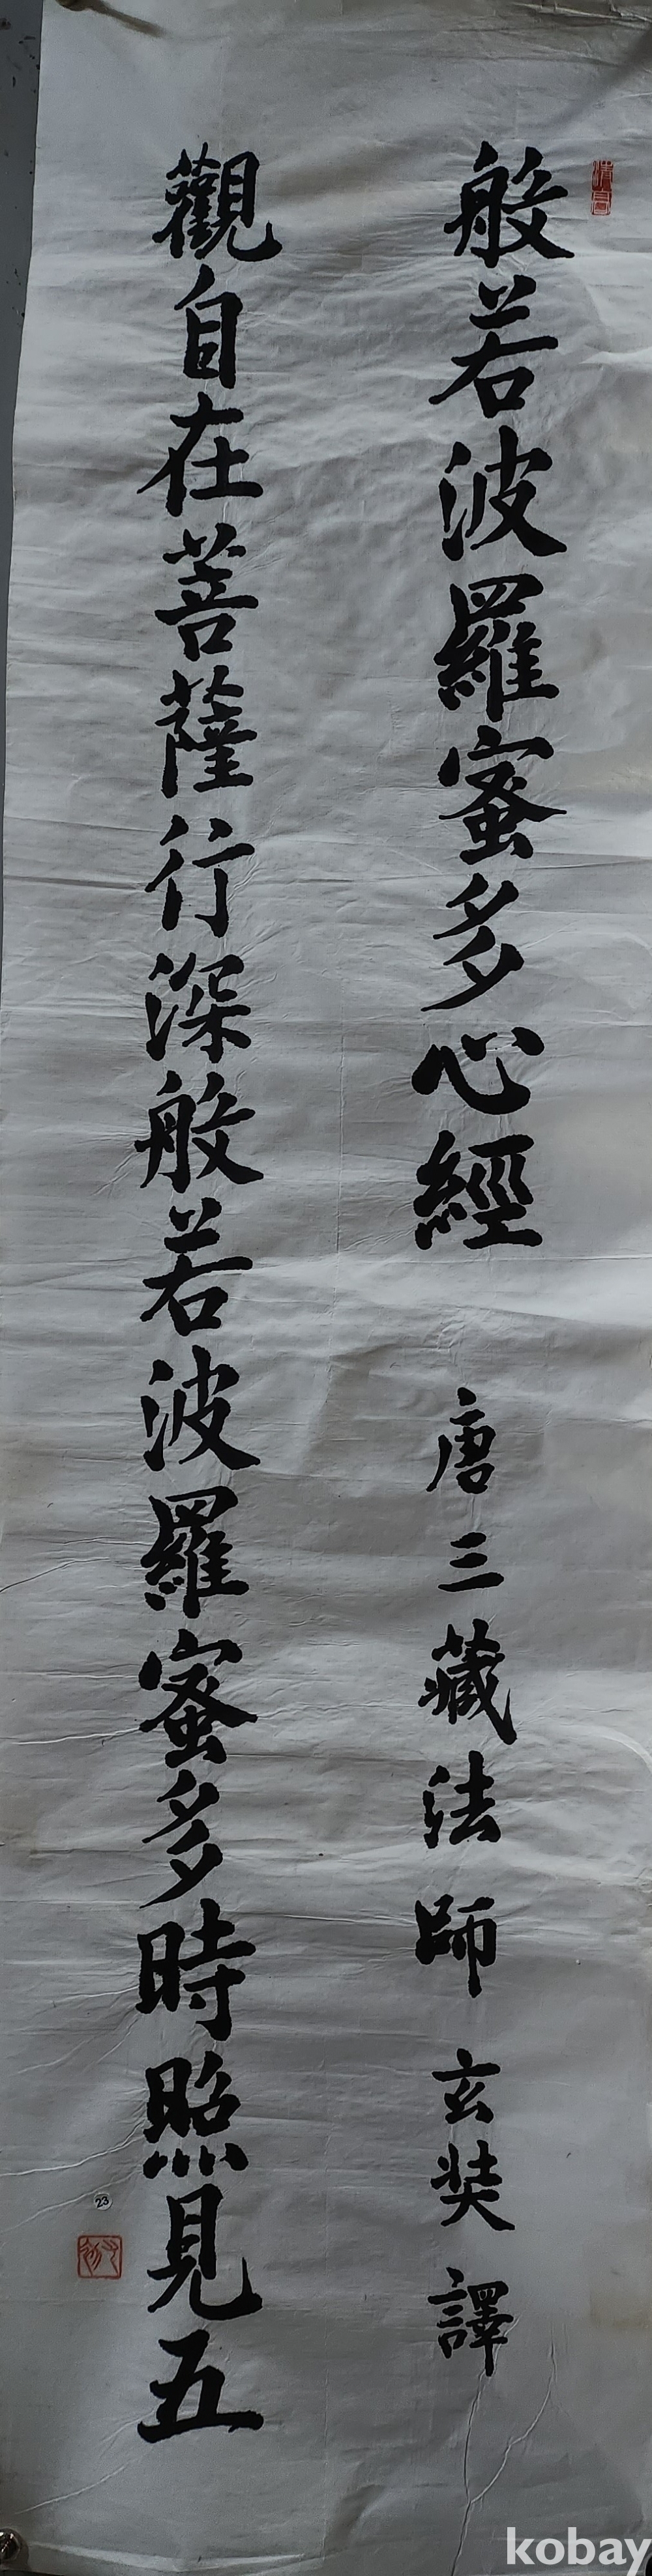 般若波羅蜜多心經 唐三藏法師 玄奘 譯
觀自在菩薩行深般若波羅蜜多時照見五
23
kobay